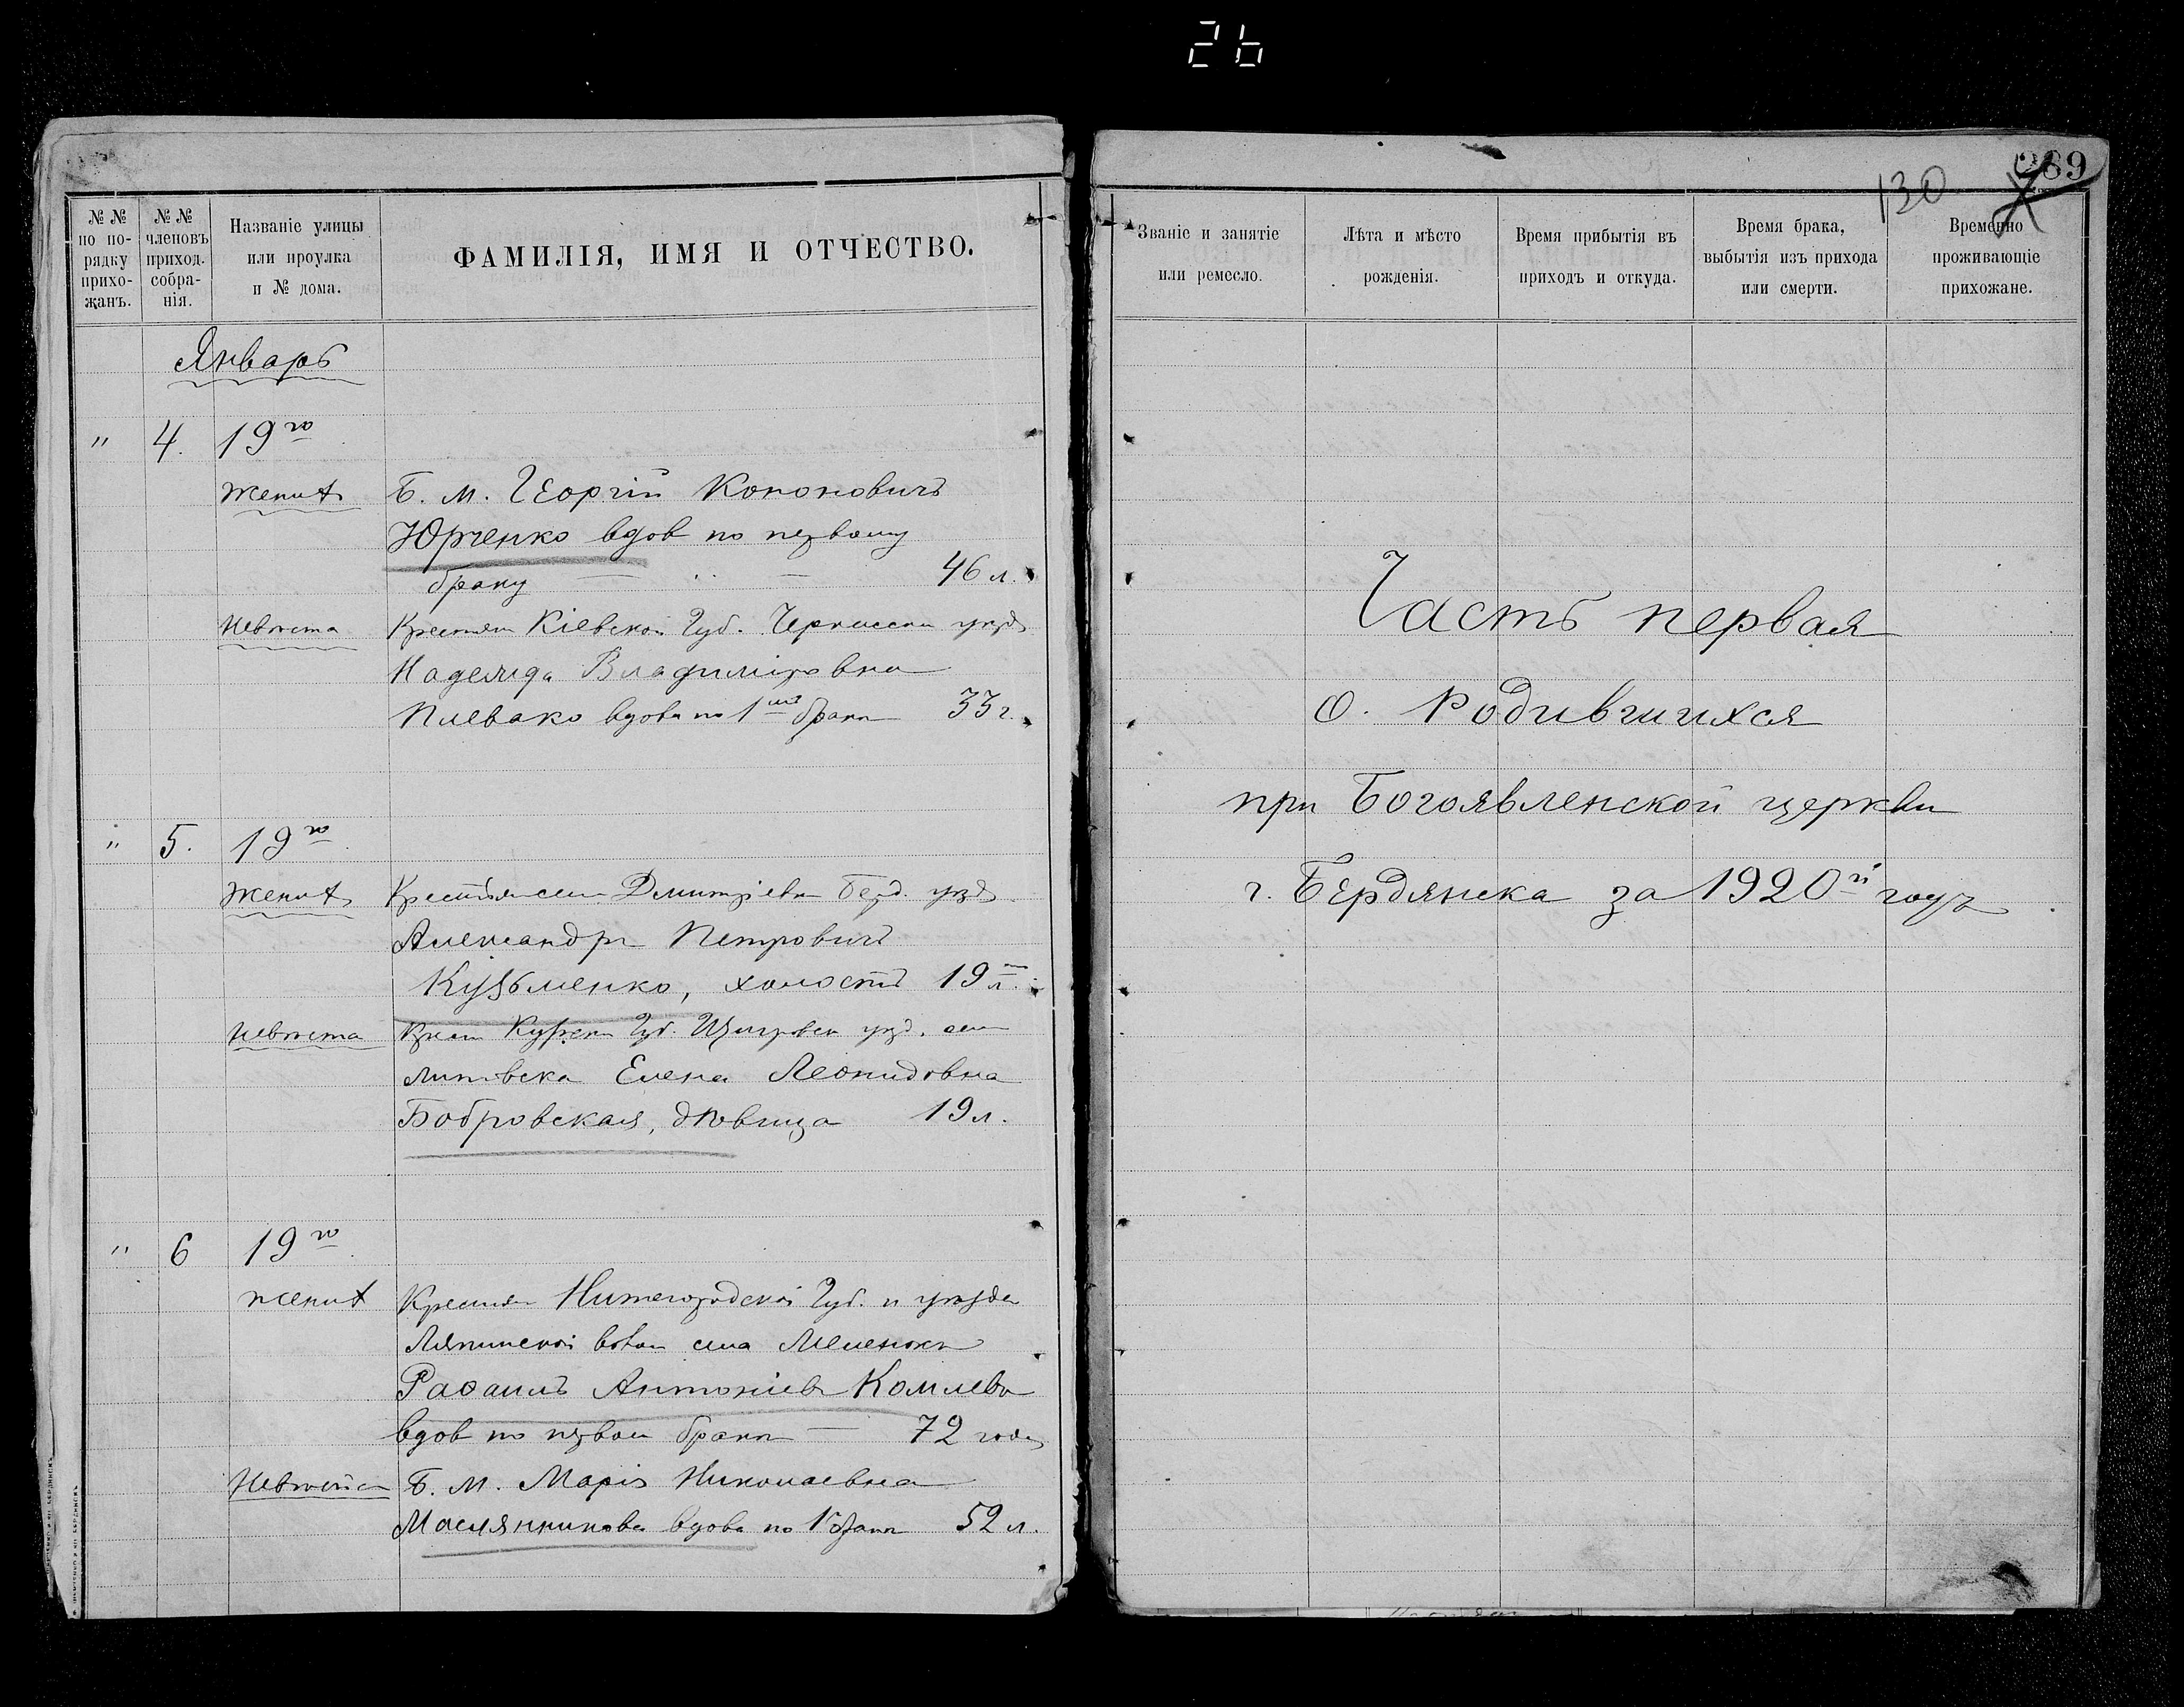 26
№ № по по- рядку прихо- жанъ.
№ № членовъ приход. собра- нія.
Названіе улицы или проулка и № дома.
ФАМИЛІЯ, ИМЯ И ОТЧЕСТВО.
Январь
" 4. 19го
Жених Б. М. Георгій Кононовичъ
Юрченко вдов по первому
браку — " — 46 л.
Невѣста Крестян Кіевской Губ. Черкасск уѣзд
Надежда Владиміровна
Плевако вдова по 1му браку 33 г.
" 5. 19го
Жених Дмитріевки Берд. уѣзд
Александръ Петровичъ
Кузьменко, холостъ 19 л.
Невѣста Курск Губ. Щигровск уѣзд.
Елена Леонидовна
Бобровская, дѣвица 19 л.
" 6 19го
жених Крестян Нижегородской Губ. и уѣзда
села
Рафаилъ Антоніев Комлевъ
вдов по первом браки — 72 года
Невѣста Б. М. Марія Николаевна
Маслянникова вдова по 1 браки 52 л.
289
130
Званіе и занятіе или ремесло.
Лѣта и мѣсто рожденія.
Время прибытія въ приходъ и откуда.
Время брака, выбытія изъ прихода или смерти.
Временно проживающіе прихожане.
Часть первая
О. Родившихся
при Богоявленской церкви
г. Бердянска за 1920й годъ